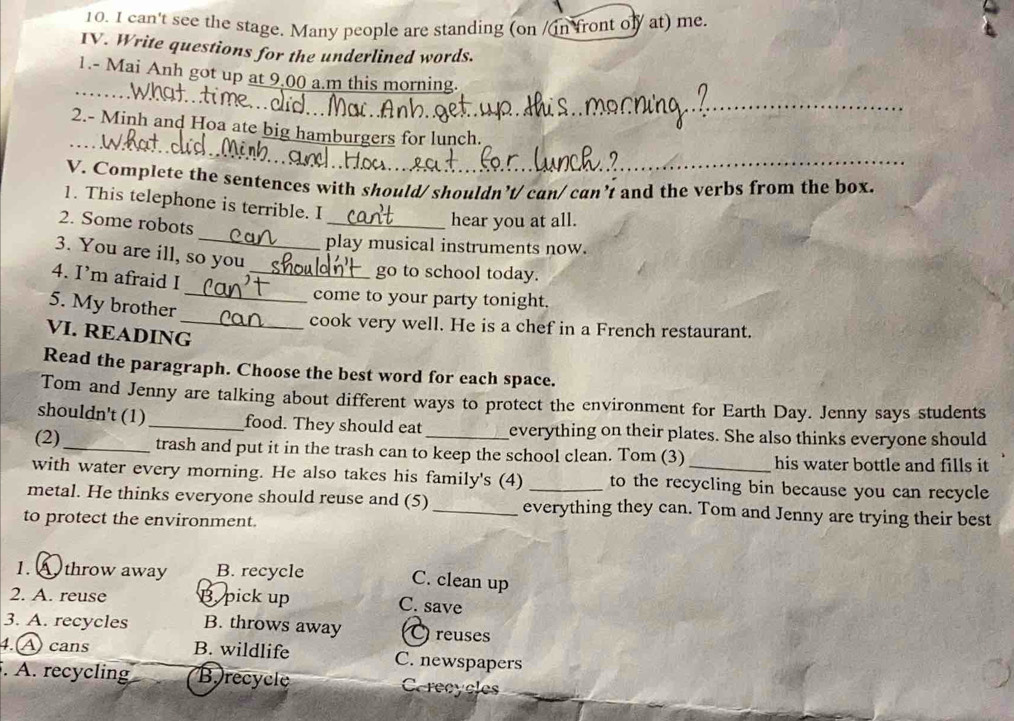 10. I can't see the stage. Many people are standing (on / in front of/ at) me.
IV. Write questions for the underlined words.
1.- Mai Anh got up at 9.00 a.m this morning.
What time did Mai Anh get up this morning ?
2.- Minh and Hoa ate big hamburgers for lunch.
What did Minh and Hoa eat for lunch ?
V. Complete the sentences with should/ shouldn't/ can/ can't and the verbs from the box.
1. This telephone is terrible. I can't hear you at all.
2. Some robots can play musical instruments now.
3. You are ill, so you shouldn't go to school today.
4. I'm afraid I can't come to your party tonight.
5. My brother can cook very well. He is a chef in a French restaurant.
VI. READING
Read the paragraph. Choose the best word for each space.
Tom and Jenny are talking about different ways to protect the environment for Earth Day. Jenny says students
shouldn't (1)________food. They should eat ________everything on their plates. She also thinks everyone should
(2)________ trash and put it in the trash can to keep the school clean. Tom (3) ________ his water bottle and fills it
with water every morning. He also takes his family's (4) ________ to the recycling bin because you can recycle
metal. He thinks everyone should reuse and (5) ________ everything they can. Tom and Jenny are trying their best
to protect the environment.
1. A. throw away B. recycle C. clean up
2. A. reuse B. pick up C. save
3. A. recycles B. throws away C. reuses
4. A. cans B. wildlife C. newspapers
. A. recycling B. recycle C. recycles